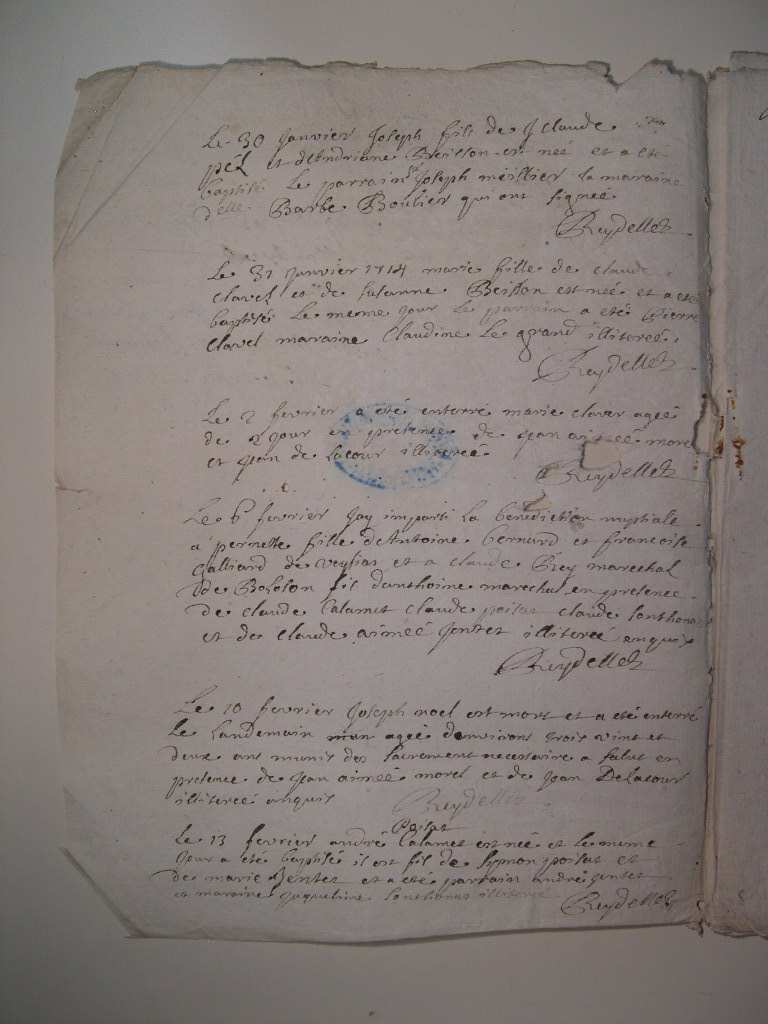 Le 30 Janvier Joseph fils de J Claude
pél et dAndriane Brisson est néé et a eté
baptisé Le parrain sr Joseph meillier La maraine
delle Barbe Boulier qui ont signéé
Reydellet
Le 31 Janvier 1714 marie fille de claude
Clavel et de susanne Beisson est néé et a eté
baptiséé Le meme Jour Le parrain a eté pierre
Clavel maraine Claudine Le grand illitereé
Reydellet
Le 2 fevrier a eté enterré marie clavel ageé
de 2 Jour en presence de Jean aimeé morel
et Jean de Lacour illitereé
Reydellet
Le 6e fevrier Jay imparti La benediction nuptiale
a pernette fille dAntoine bernard et francoise
Galliard de veysias et a claude Rey marechal
de Bololon fil danthoine marechal en presence
de claude Calamet Claude poisat claude
et de claude aimeé Jentet illitereé enquis
Reydellet
Le 10 fevrier Joseph noel est mort et a eté enterré
Le Landemain ageé denvirons trois vint et
deux ans munis des sacrement necessaire a salut en
presence de Jean aimeé morel et de Jean Delacour
illitereé enquis Reydellet
poisat
Le 13 fevrier andré Calamet est néé et Le mesme
Jour a eté baptisé il est fil de symon poisat et
de marie Jentet et a eté parrain andré Jentet
et maraine Jaqueline illitereé
Reydellet